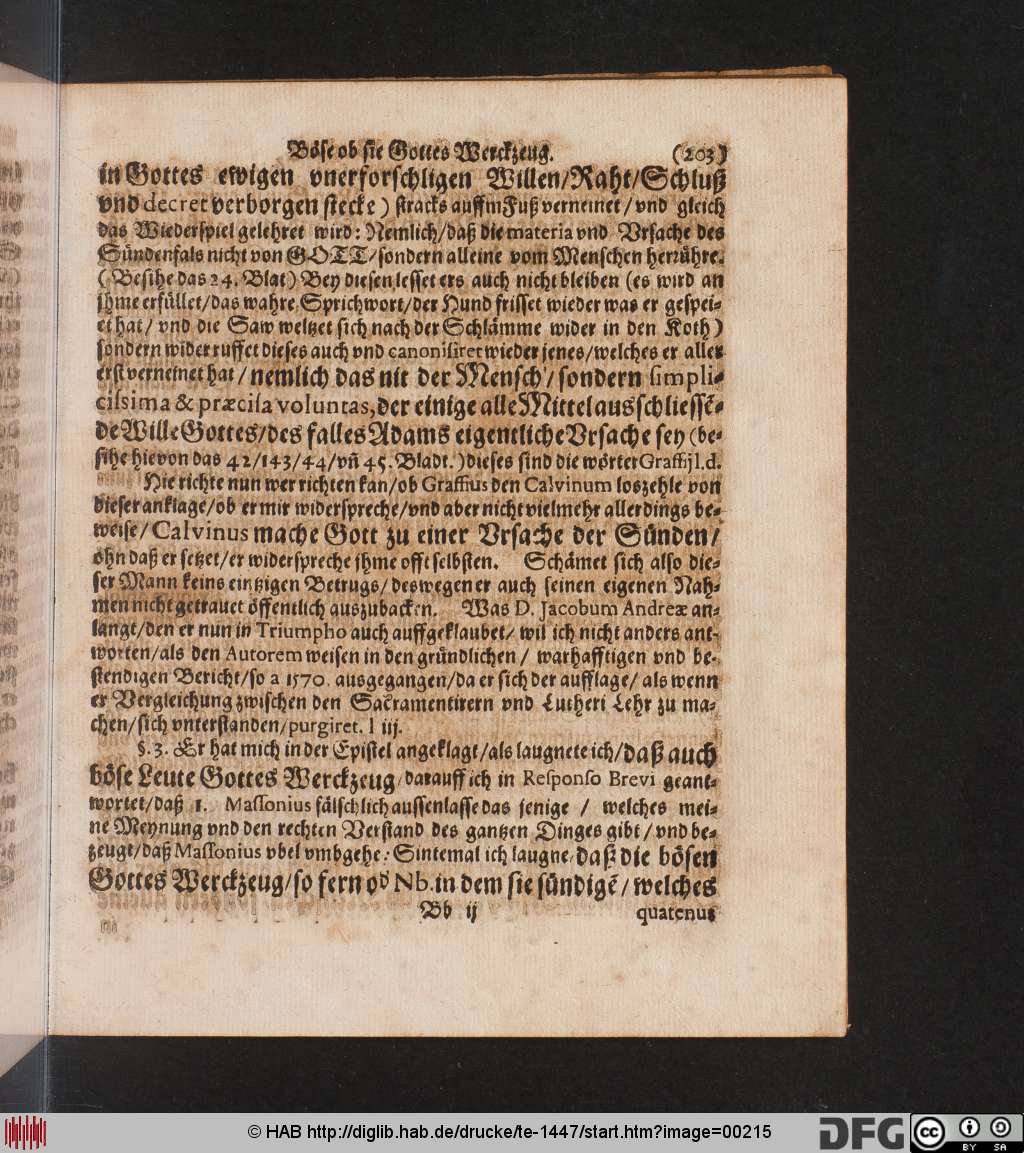 Böse ob sie Gottes Werckzeug. (203)
in Gottes ewigen vnerforschligen Willen/Raht/Schluß
vnd decret verborgen stecke) stracks auffm Fuß verneinet/vnd gleich
das Wiederspiel gelehret wird: Nemlich/daß die materia vnd Vrsache des
Sündenfals nicht von GOTT/sondern alleine vom Menschen herrühre.
(Besihe das 24. Blat) Bey diesen lesset ers auch nicht bleiben (es wird an
jhme erfüllet/das wahre Sprichwort/der Hund frisset wieder was er gespei-
et hat/ vnd die Saw weltzet sich nach der Schlämme wider in den Koth)
sondern widerruffet dieses auch vnd canonisiret wieder jenes/welches er aller
erst verneinet hat/nemlich das nit der Mensch/sondern simpli-
cissima & præcisa voluntas, der einige alle Mittel ausschliessẽ-
de Wille Gottes/des falles Adams eigentliche Vrsache sey (be-
sihe hievon das 42/143/44/vñ 45. Bladt.) dieses sind die wörter Graffij l.d.
Hie richte nun wer richten kan/ob Graffius den Calvinum loszehle von
dieser anklage/ob er mir widerspreche/vnd aber nicht vielmehr allerdings be-
weise/Calvinus mache Gott zu einer Vrsache der Sünden/
ohn daß er setzet/er widerspreche jhme offt selbsten. Schämet sich also die-
ser Mann keins eintzigen Betrugs/deswegen er auch seinen eigenen Nah-
men nicht getrauet öffentlich auszubacken. Was D. Jacobum Andreæ an-
langt/den er nun in Triumpho auch auffgeklaubet/ wil ich nicht anders ant-
worten/als den Autorem weisen in den gründlichen/ warhafftigen vnd be-
stendigen Bericht/so a 1570. ausgegangen/da er sich der aufflage/als wenn
er Vergleichung zwischen den Sacramentirern vnd Lutheri Lehr zu ma-
chen/sich vnterstanden/purgiret. l iij.
§. 3. Er hat mich in der Epistel angeklagt/als laugnete ich/daß auch
böse Leute Gottes Werckzeug/darauff ich in Responso Brevi geant-
wortet/daß 1. Massonius fälschlich aussenlasse das jenige / welches mei-
ne Meynung vnd den rechten Verstand des gantzen Dinges gibt/vnd be-
zeugt/daß Massonius vbel vmbgehe: Sintemal ich laugne/daß die bösen
Gottes Werckzeug/so fern od Nb. in dem sie sündigẽ/welches
Bb ij quatenus
© HAB http://diglib.hab.de/drucke/te-1447/start.htm?image=00215
DFG cc BY SA